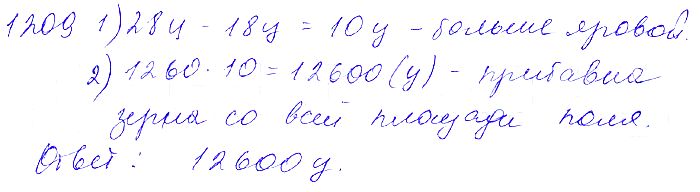 1209 1) 28ц - 18ц = 10ц - больше яровой.
2) 1260 · 10 = 12600 (ц) - прибавка
зерна со всей площади поля.
Ответ: 12600ц.